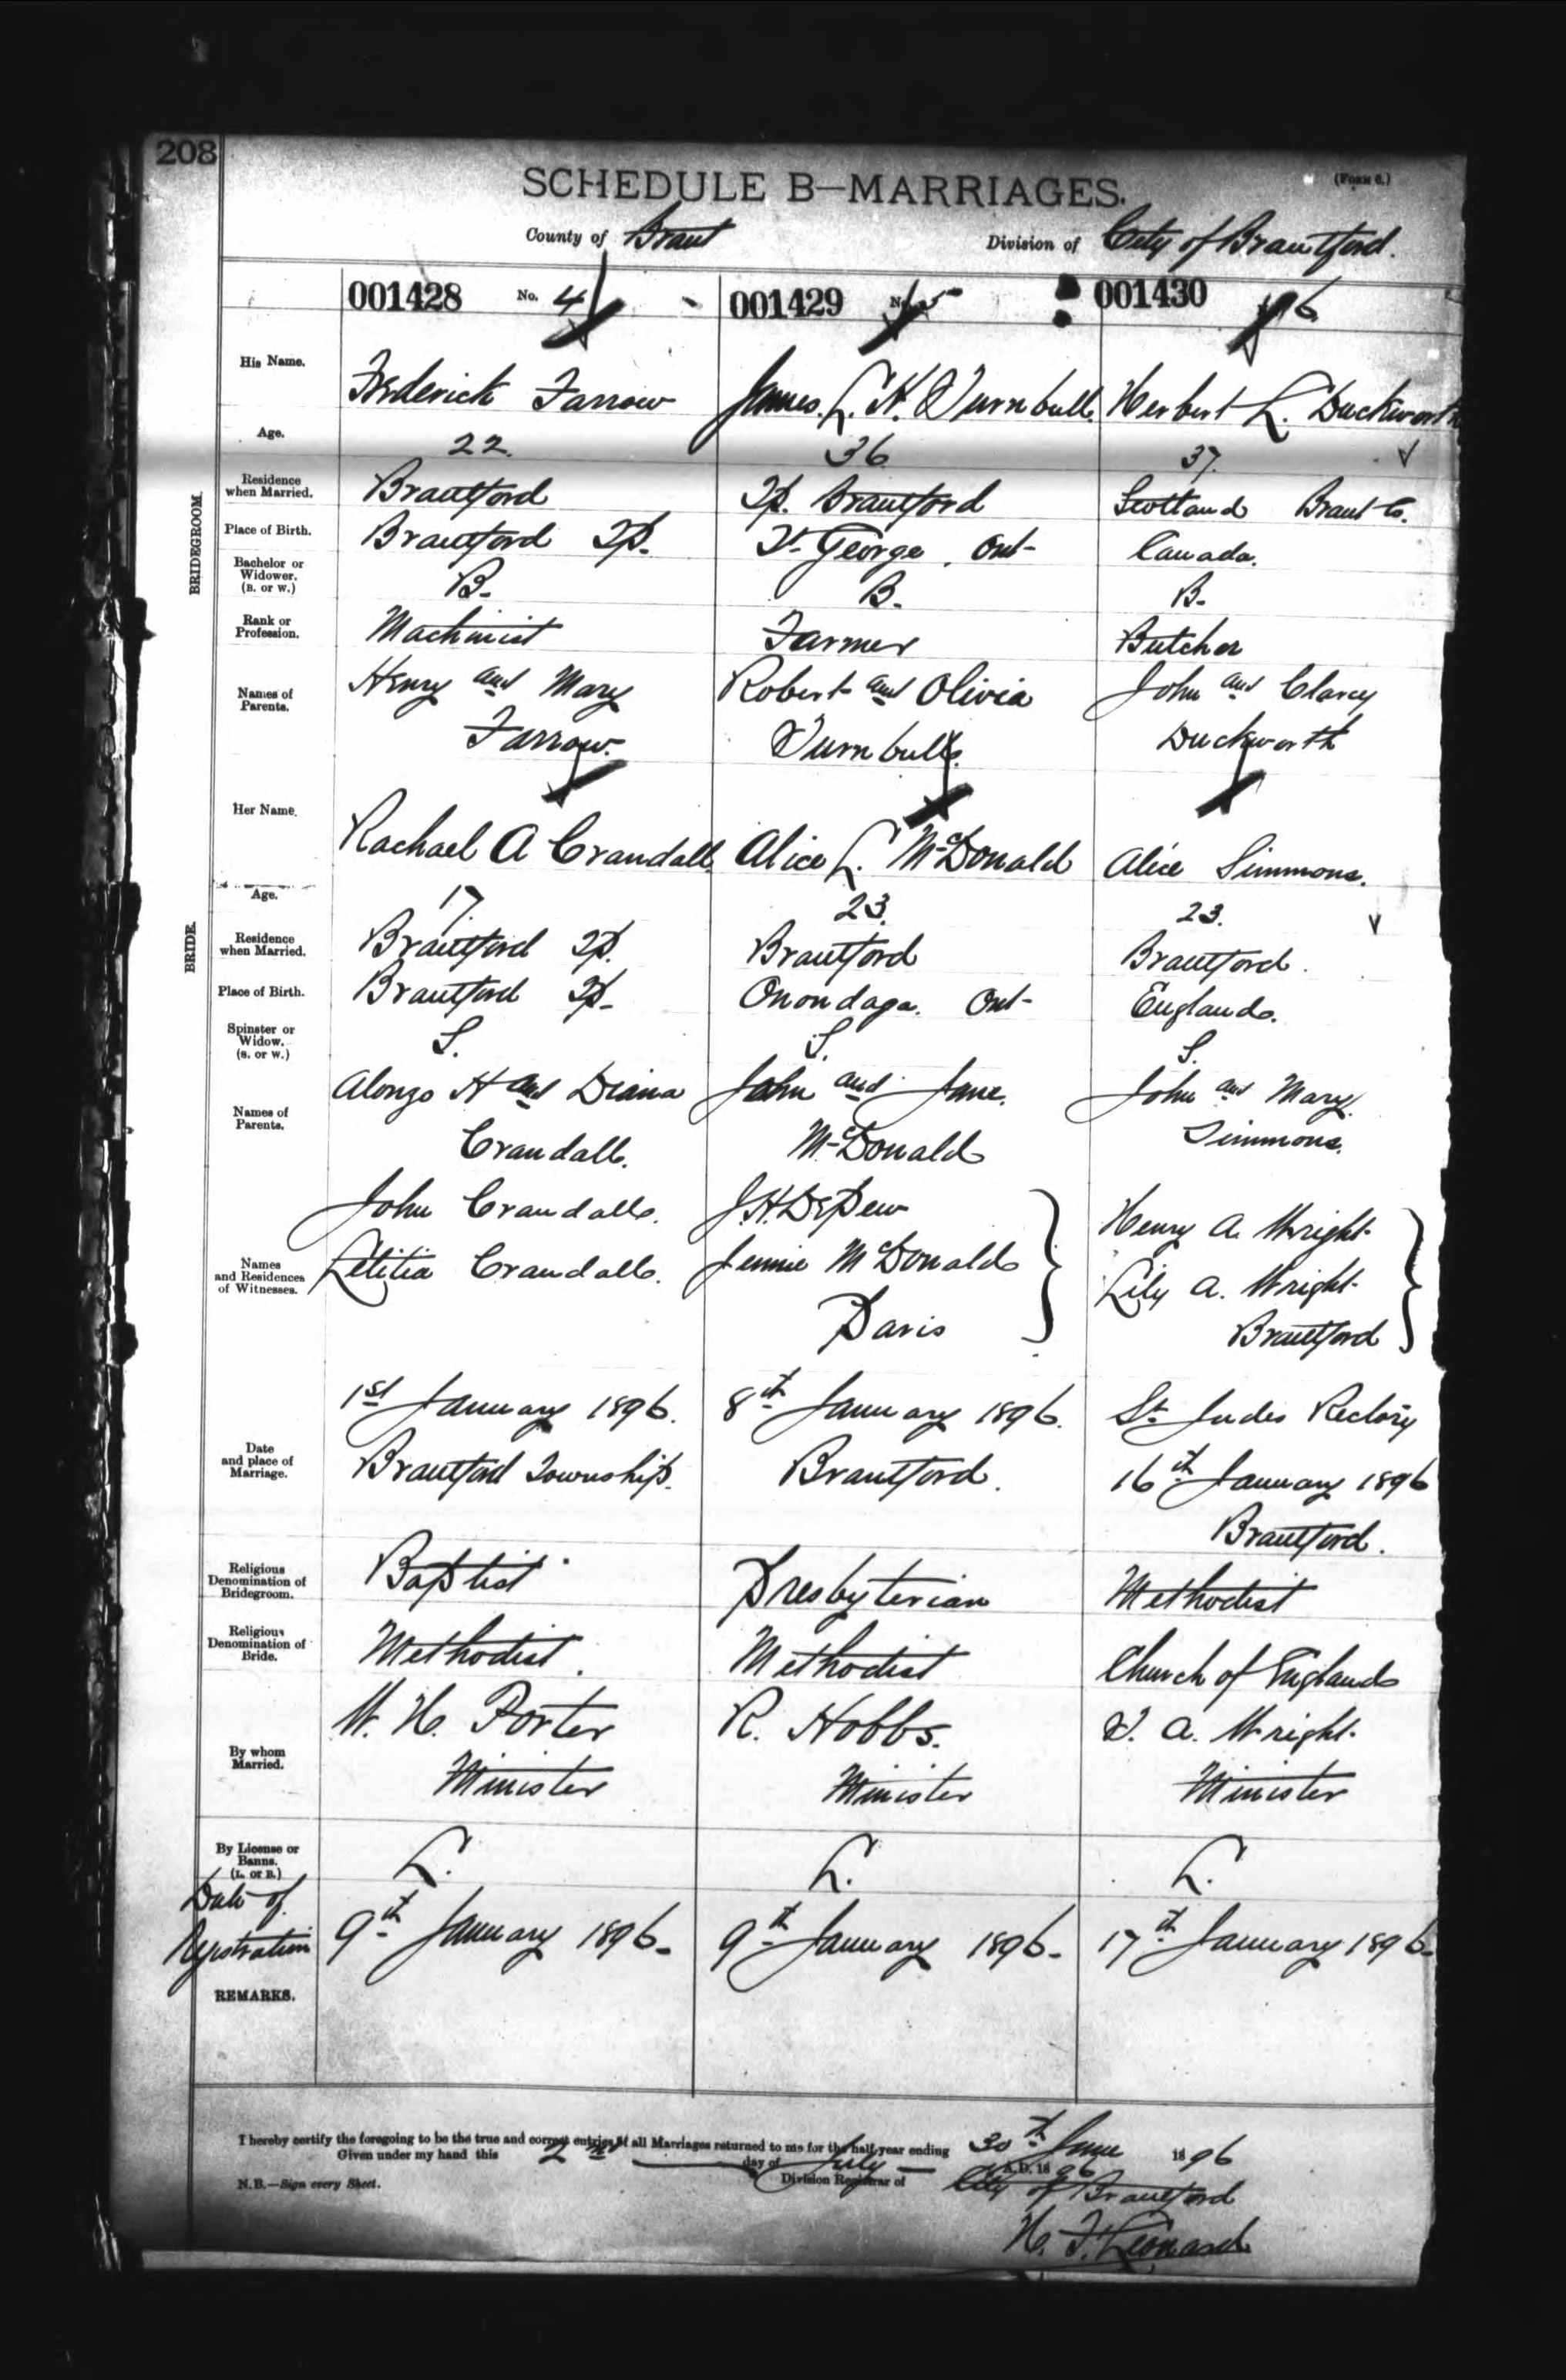 208
SCHEDULE B—MARRIAGES.
(FORM 6.)
County of Brant
Division of City of Brantford.
001428 No. 4
001429 No. 5
001430 6
BRIDEGROOM.
His Name.
Frderick Farrow
James. L. H. Turnbull.
Herbert L. Duckworth
Age.
22.
36
37.
Residence when Married.
Brantford
Tp. Brantford
Scotland Brant Co.
Place of Birth.
Brantford Tp.
St George. Ont-
Canada.
Bachelor or Widower. (B. or W.)
B.
B.
B.
Rank or Profession.
Machinist
Farmer
Butcher
Names of Parents.
Henry and Mary
Farrow.
Robert and Olivia
Turnbull.
John and Clarcy
Duckworth
BRIDE.
Her Name.
Rachael A Crandall.
Alice L. McDonald
Alice Simmons.
Age.
17.
23.
23.
Residence when Married.
Brantford Tp.
Brantford
Brantford.
Place of Birth.
Brantford Tp.
Onondaga. Ont-
England.
Spinster or Widow. (S. or W.)
S.
S.
S.
Names of Parents.
Alonzo H and Diana
Crandall.
John and Jane.
McDonald
John and Mary.
Simmons.
Names and Residences of Witnesses.
John Crandall.
Letitia Crandall.
J. H. DePew
Jennie McDonald
Paris
Henry A. Wright.
Lily A. Wright.
Brantford
Date and place of Marriage.
1st January 1896.
Brantford Township.
8th January 1896.
Brantford.
St Judes Rectory
16th January 1896
Brantford.
Religious Denomination of Bridegroom.
Baptist
Presbyterian
Methodist
Religious Denomination of Bride.
Methodist.
Methodist
Church of England
By whom Married.
W. H. Porter
Minister
R. Hobbs.
Minister
T. A. Wright.
Minister
By License or Banns. (L. or B.)
L.
L.
L.
Date of Registration
9th January 1896-
9th January 1896-
17th January 1896-
REMARKS.
I hereby certify the foregoing to be the true and correct entries of all Marriages returned to me for the half-year ending 30th June 1896
Given under my hand this 2nd day of July A.D. 1896
N.B.—Sign every Sheet.
Division Registrar of City of Brantford
H. F. Leonard